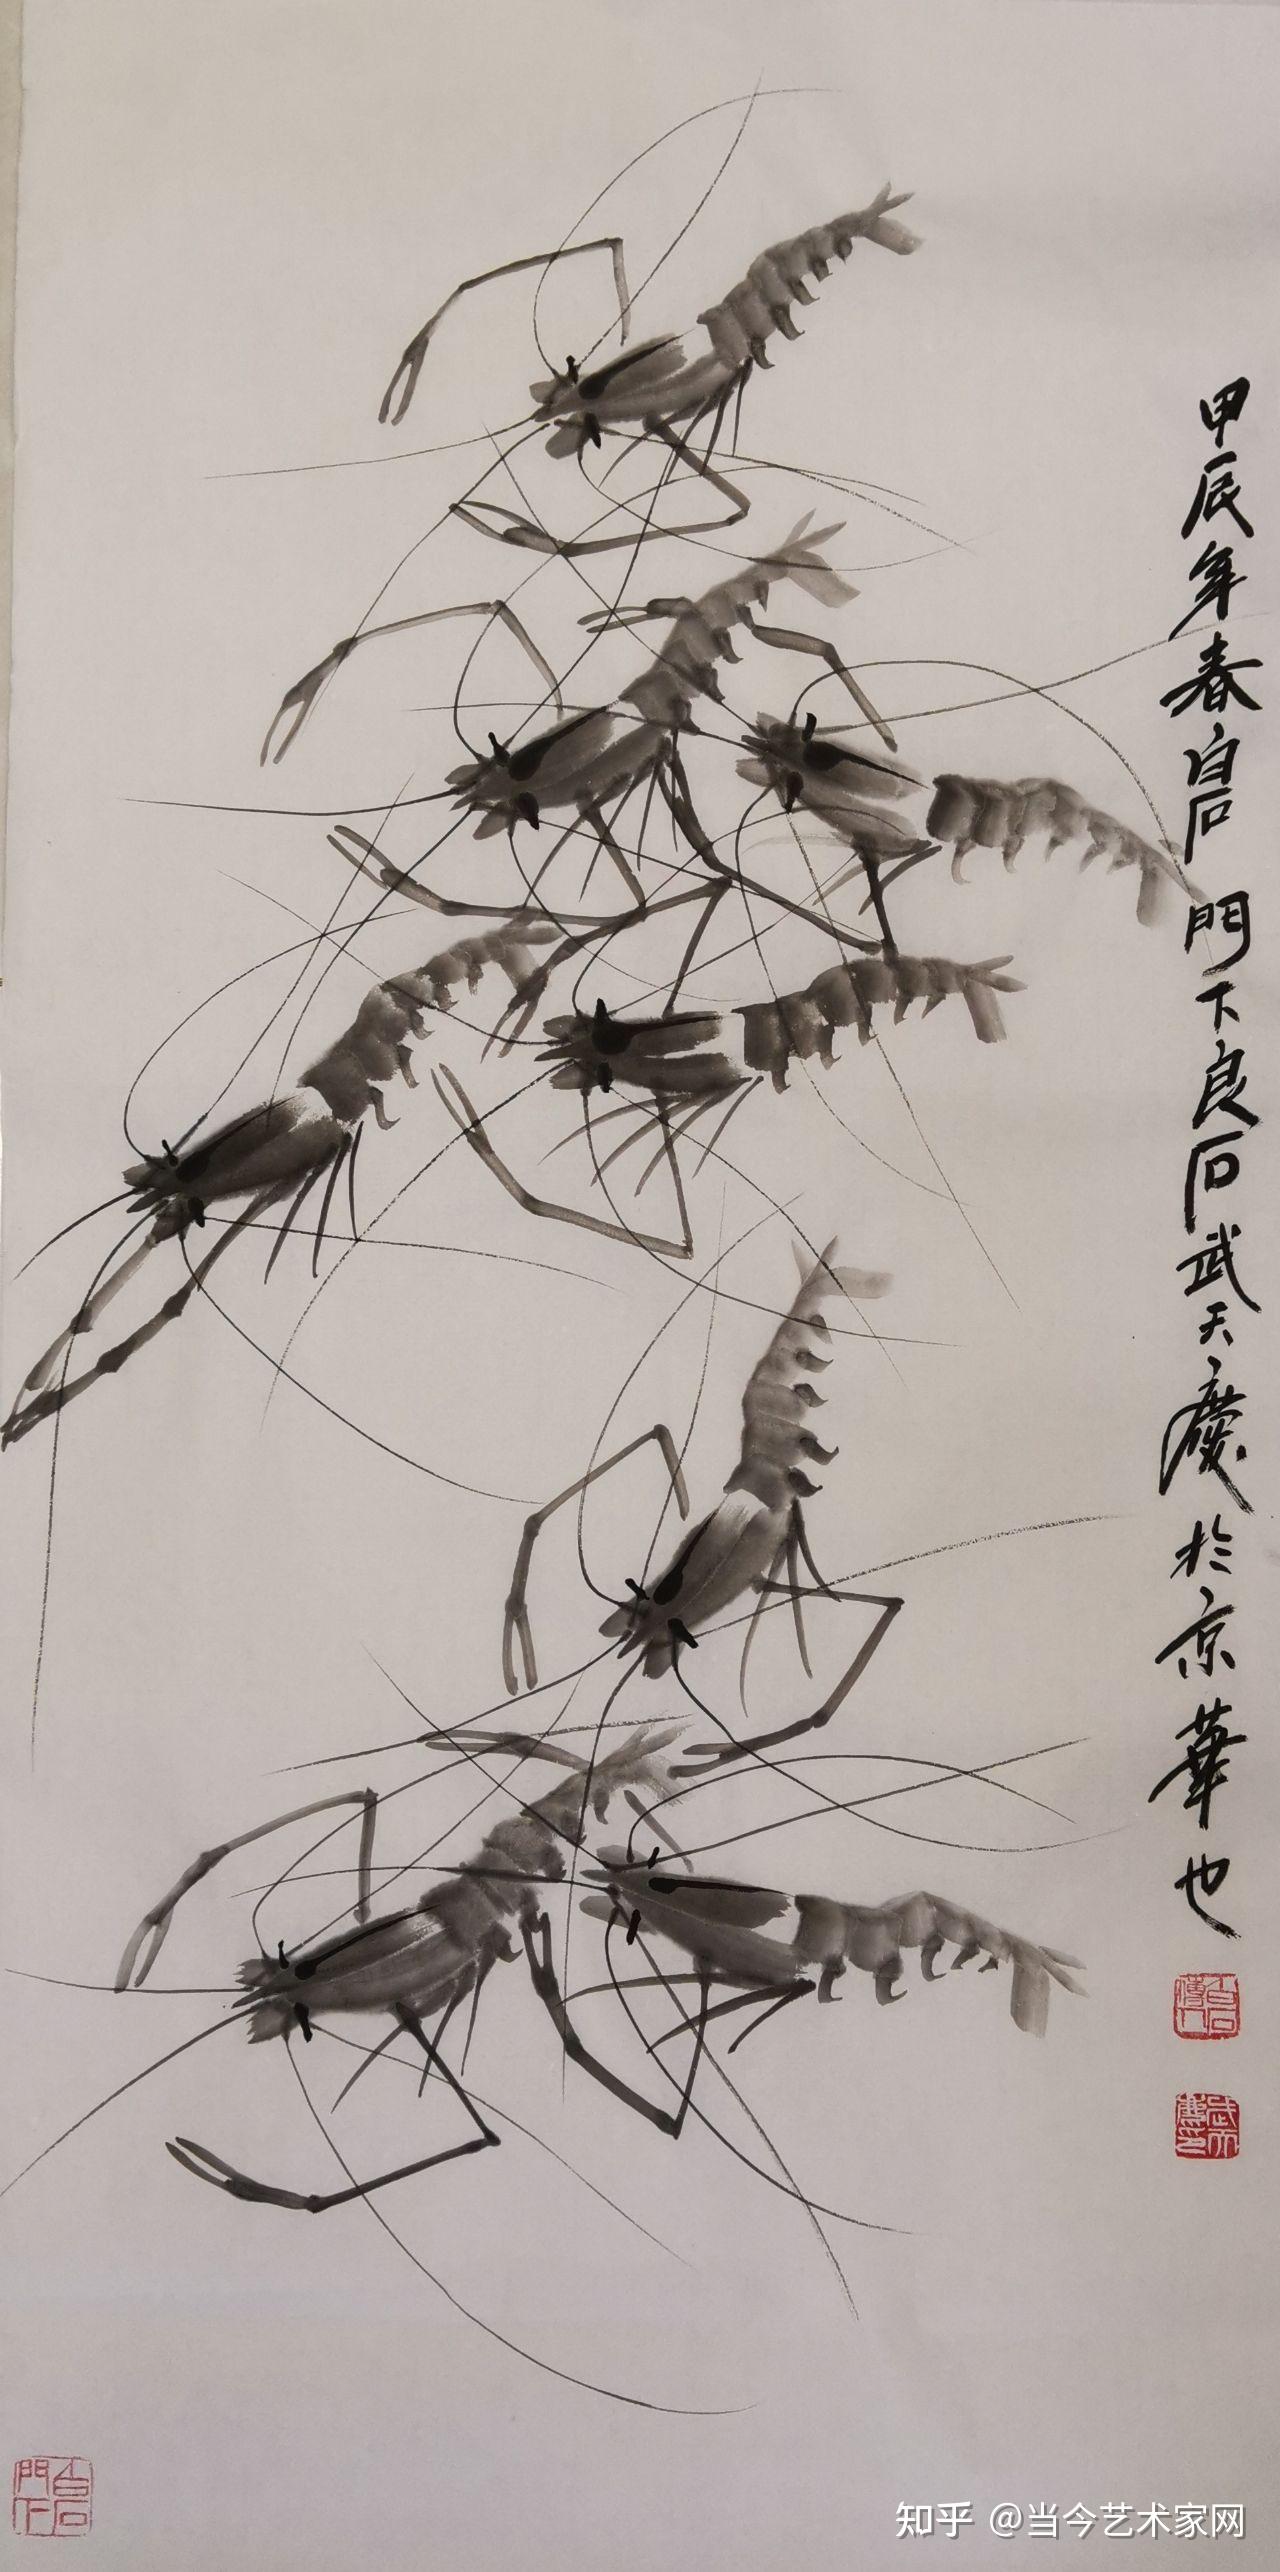 甲辰年春白石門下良石武天慶於京華也
白石傳人
武天慶印
白石門下
知乎 @当今艺术家网